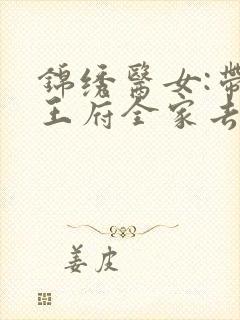 錦绣醫女:帶
王府全家去
姜皮